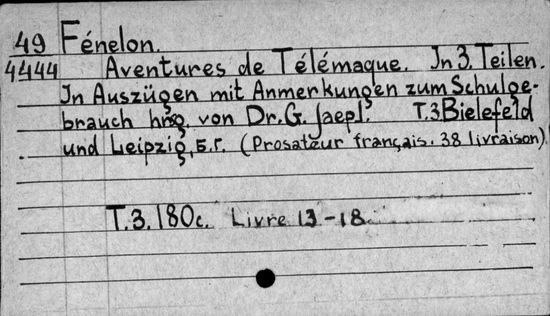 49 Fénelon.
4444 Aventures de Télémaque. In 3. Teilen.
In Auszügen mit Anmerkungen zum Schulge-
brauch hrsg. von Dr. G. Jaepl. T.3 Bielefeld
und Leipzig, Б.г. (Prosateur français. 38 livraison).
T.3. 180c. Livre 13-18.